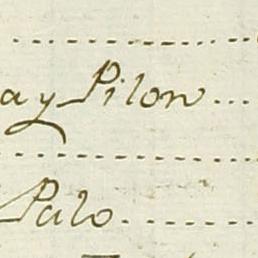 ay Pilon
Palo